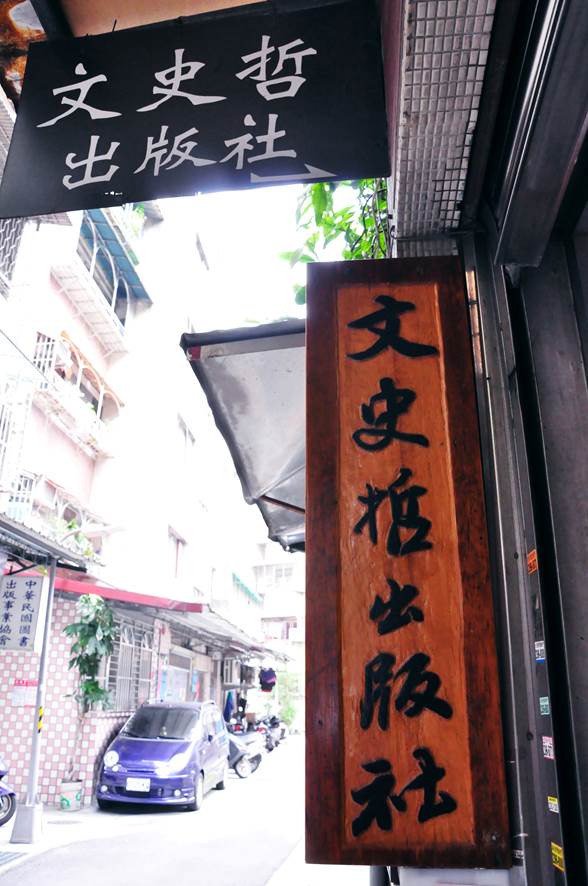 文史哲
出版社
文史哲出版社
中華民國圖書
出版事業協會